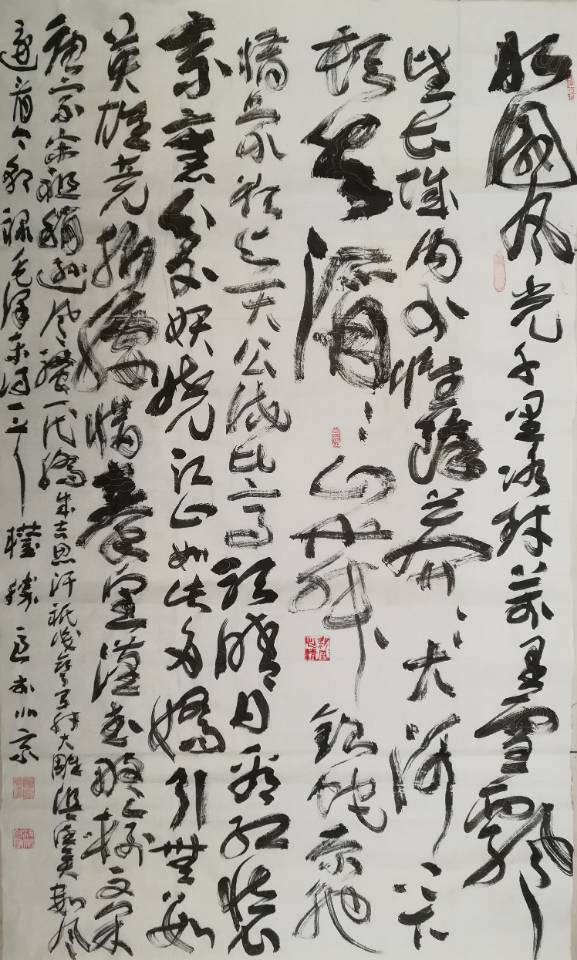 北國风光千里冰封万里雪飘
望长城内外惟馀莽莽大河上下
顿失滔滔山舞银蛇原驰
蜡象欲与天公试比高须晴日看红装
素裹分外妖娆江山如此多娇引無数
英雄竞折腰惜秦皇汉武略输文采
唐宗宋祖稍逊风骚一代骄成吉思汗祇识弯弓射大雕俱往矣数风
今朝 录毛泽东词一 京